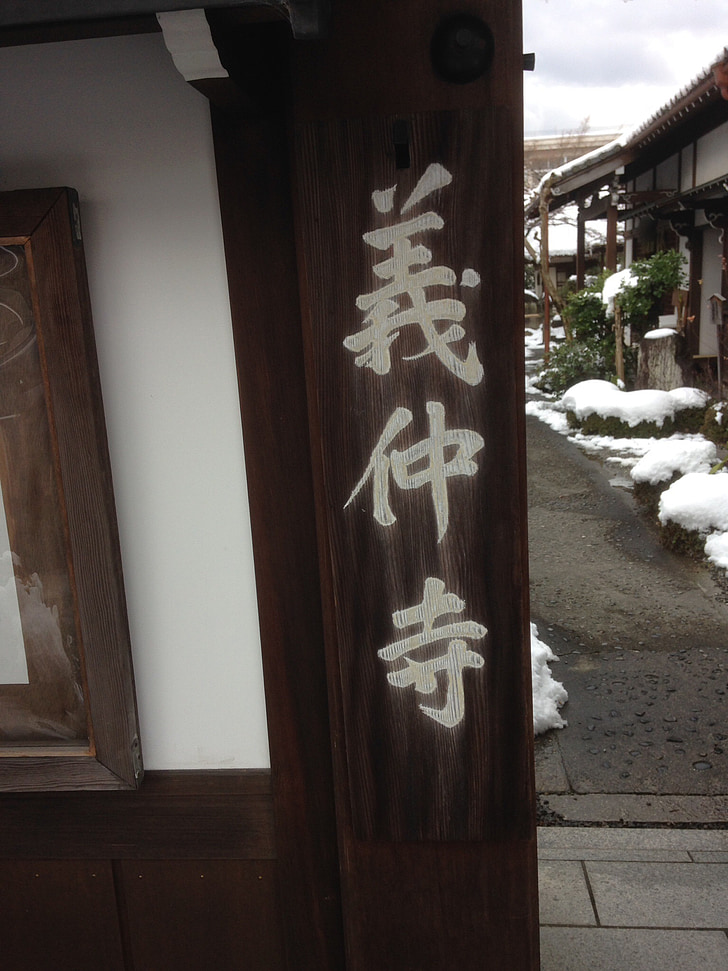 義仲寺